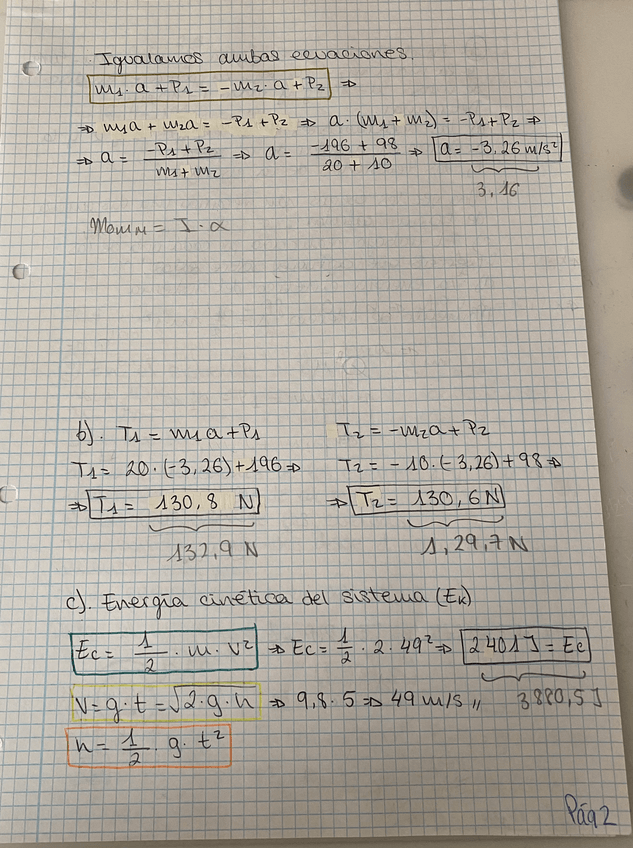 Igualamos ambas ecuaciones.
m1 · a + P1 = -m2 · a + P2 ⇒
⇒ m1a + m2a = -P1 + P2 ⇒ a · (m1 + m2) = -P1 + P2 ⇒
⇒ a = (-P1 + P2)/(m1 + m2) ⇒ a = (-196 + 98)/(20 + 10) ⇒ a = -3,26 m/s²
3,16
= I · α
b). T1 = m1a + P1 T2 = -m2a + P2
T1 = 20 · (-3,26) + 196 ⇒ T2 = -10 · (-3,26) + 98 ⇒
⇒ T1 = 130,8 N ⇒ T2 = 130,6 N
132,9 N 1,29,7 N
c). Energía cinética del sistema (Ek)
Ec = 1/2 · m · v² ⇒ Ec = 1/2 · 2 · 49² ⇒ 2401 J = Ec
V = g · t = √2 · g · h ⇒ 9,8 · 5 ⇒ 49 m/s ,, 3880,5 J
h = 1/2 · g · t²
Pág 2